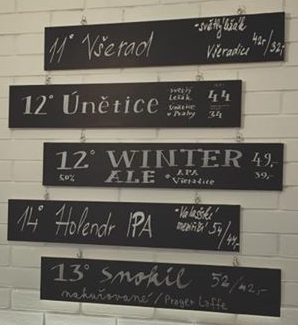 11° Všerad
světlý ležák
Všeradice
42,-/32,-
12° Únětice
světlý
ležák
Únětice
u Prahy
44
34
12° WINTER 49,-
5,0% ALE • APA 39,-
Všeradice
14° Holendr IPA
Valašské
meziříčí 54/44,-
13° Smokil 52/42,-
nakuřované / Proger Loffe